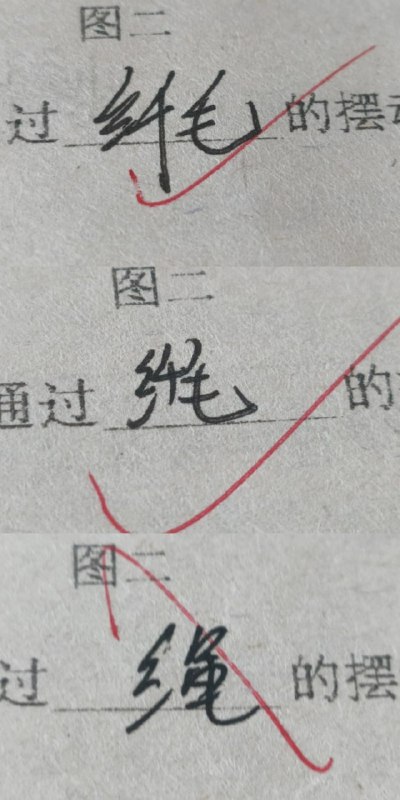 图二
过纤毛的摆动
图二
通过纤毛的
图二
过绳的摆